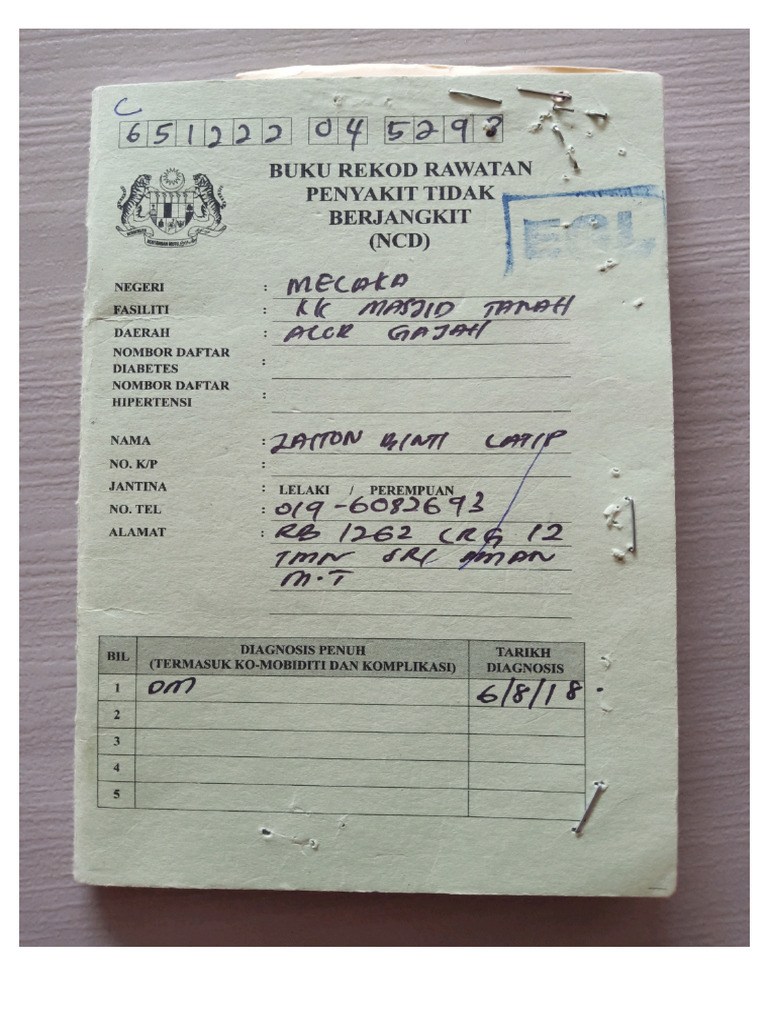 C
651222 04 5293
BUKU REKOD RAWATAN
PENYAKIT TIDAK
BERJANGKIT
(NCD)
EGL
NEGERI : MELAKA
FASILITI : KK MASJID TANAH
DAERAH : ALOR GAJAH
NOMBOR DAFTAR
DIABETES :
NOMBOR DAFTAR
HIPERTENSI :
NAMA : ZAITON BINTI LATIP
NO. K/P :
JANTINA : LELAKI / PEREMPUAN
NO. TEL : 019-6082693
ALAMAT : RB 1262 LRG 12
TMN SRI AMAN
M.T
BIL DIAGNOSIS PENUH (TERMASUK KO-MOBIDITI DAN KOMPLIKASI) TARIKH DIAGNOSIS
1 DM 6/8/18.
2
3
4
5